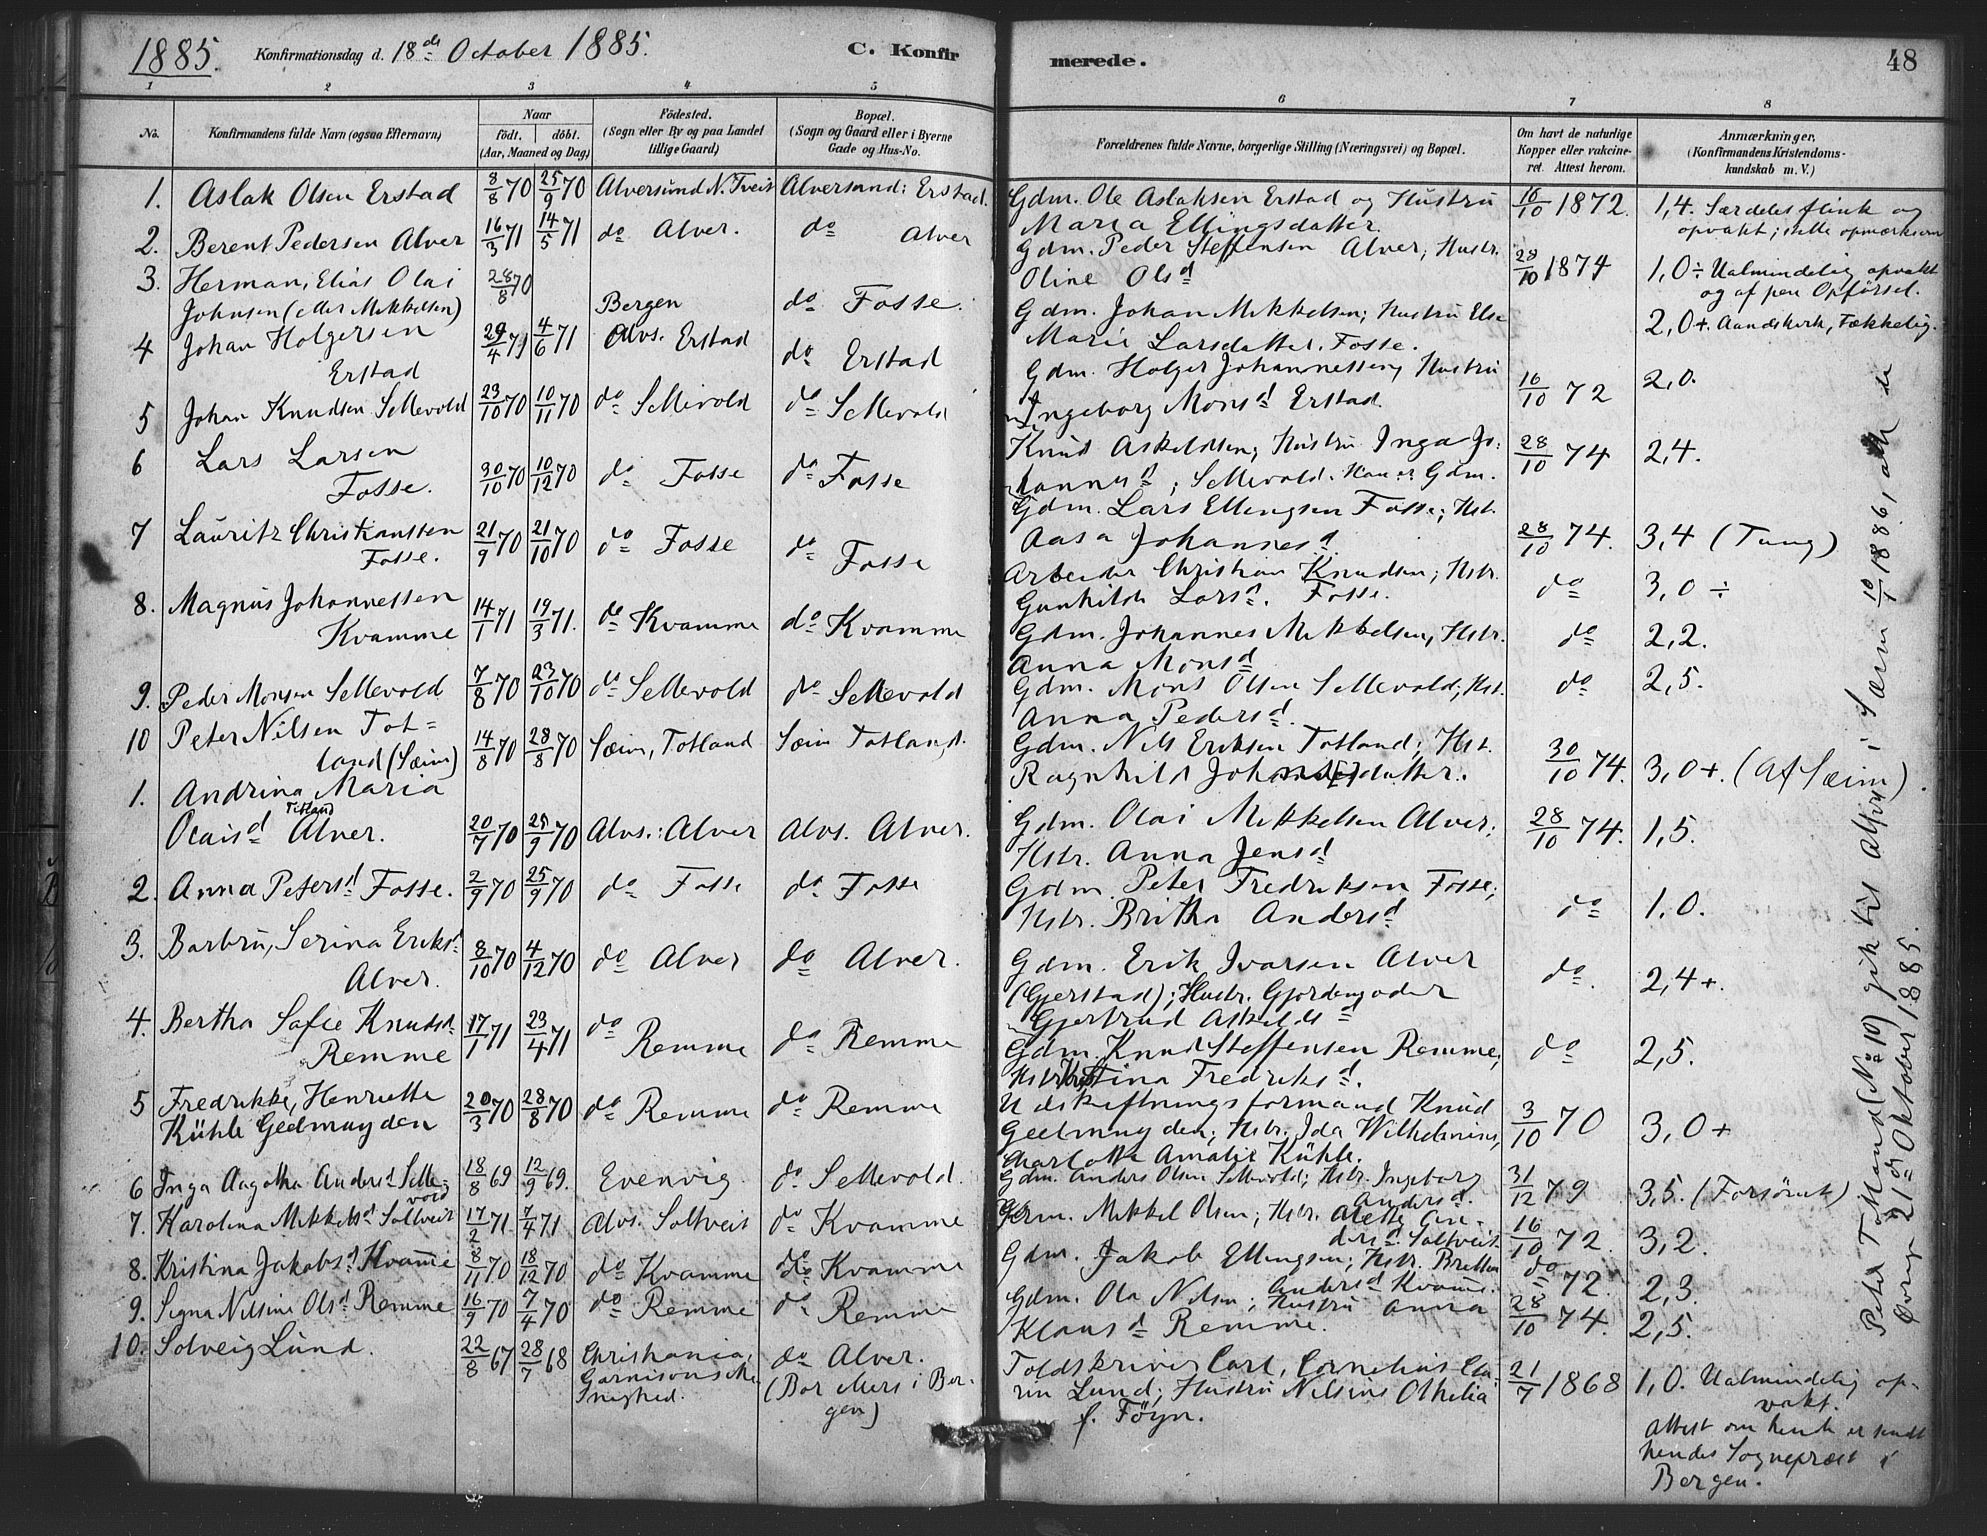 1885. Konfirmationsdag d. 18de October 1885. C. Konfirmerede. 48
1 2 3 4 5 6 7 8
No. Konfirmandens fulde Navn (ogsaa Efternavn) Naar födt. döbt. (Aar, Maaned og Dag) Födested. (Sogn eller By og paa Landet tillige Gaard) Bopæl. (Sogn og Gaard eller i Byerne Gade og Hus-No. Forældrenes fulde Navne, borgerlige Stilling (Næringsvei) og Bopæl. Om havt de naturlige Kopper eller vakcineret. Attest herom. Anmærkninger, (Konfirmandens Kristendomskundskab m. V.)
1. Aslak Olsen Erstad 8/8 70 25/9 70 Alversund N. Tveit Alversund: Erstad. Gdm. Ole Aslaksen Erstad og Hustru 16/10 1872. 1,4. Særdeles flink og
Maria Ellingsdatter. opvakt; stille opmærksom
2. Berent Pedersen Alver 16/3 71 14/5 71 do Alver. do Alver Gdm. Peder Steffensen Alver; Hustr. 28/10 1874 1,0÷ Ualmindelig opvakt
Oline Olsd og af pen Opførsel.
3. Herman, Elias Olai 28/8 70
Johnsen (eller Mikkelsen) Bergen do Fosse. Gdm. Johan Mikkelsen; Hustru Else 2,0+. Aandssterk, Tækkelig.
Marie Larsdatter. Fosse.
4 Johan Holgersen 29/4 71 4/6 71 Alvs. Erstad do Erstad Gdm. Holger Johannessen, Hustru 16/10 72 2,0.
Erstad Ingeborg Monsd Erstad.
5 Johan Knudsen Sellevold 23/10 70 10/11 70 do Sellevold do Sellevold Knud Askeldsen; Hustru Inga Jo- 28/10 74 2,4.
hannesd; Sellevold. Han er Gdm.
6 Lars Larsen
Fosse. 30/10 70 10/12 70 do Fosse do Fosse Gdm. Lars Ellingsen Fosse; Hst. 28/10 74. 3,4 (Tung)
Aasa Johannesd
7 Lauritz Christianssen 21/9 70 21/10 70 do Fosse do Fosse Arbeider Christian Knudsen; Hstr. do 3,0 ÷
Fosse. Gunhilda Larsd. Fosse.
8. Magnus Johannessen 14/1 71 19/3 71. do Kvamme do Kvamme Gdm. Johannes Mikkelsen, Hstr. do 2,2.
Kvamme Anna Monsd
9. Peder Monsen Sellevold 7/8 70 23/10 70 do Sellevold do Sellevold Gdm. Mons Olsen Sellevold; Hst. do 2,5.
Anna Pedersd.
10 Peter Nilsen Tot=
land (Sæim) 14/8 70 28/8 70 Sæim, Totland Sæim Totland. Gdm. Nils Eriksen Totland; Hst. 30/10 74. 3,0+. (Af Sæim)
1. Andrina Maria
Olaisd Alver. 20/7 70 25/9 70 Alvs.: Alver Alvs. Alver. Gdm. Olai Mikkelsen Alver; 28/10 74. 1,5.
Hstr. Anna Jensd
2. Anna Petersd Fosse. 2/9 70 25/9 70 do Fosse do Fosse Gdm. Peter Fredriksen Fosse; do 1,0.
Hstr. Britha Andersd
3. Barbru, Serina Eriksd 8/10 70 4/12 70 do Alver do Alver. Gdm. Erik Ivarsen Alver do. 2,4+.
Alver. (Gjerstad); Hustr. Gjordeng oder
Gjertrud Askeldsd
4. Bertha Sofie Knudsd 17/1 71 23/4 71 do Remme do Remme Gdm. Knud Steffensen Remme, do 2,5.
Remme Fredriksd.
5 Fredrikke, Henriette 20/3 70 28/8 70 do Remme do Remme Udskiftningsformand Knud 3/10 70 3,0+
Kühle Geelmuyden Geelmuyden; Hstr. Ida Wilhelmine,
Charlotte Amalie Kühle.
6 Inga Aagotha Andersd Selle- 18/8 69 12/9 69. Evenvig. do Sellevold. Gdm. Anders Olsen Sellevold; Hstr. Ingeborg 31/12 79 3,5. (Forsømt)
vold Andersd.
7. Karolina Mikkelsd Soltveit 17/2 71. 7/4 71 Alvs. Soltveit do Kvamme Gdm. Mikkel Olsen; Hstr. An- 16/10 72. 3,2.
dersd. Soltveit
8. Kristina Jakobsd Kvamme 8/11 70 18/12 70 do Kvamme do Kvamme Gdm. Jakob Ellingsen; Hstr. do 72. 2,3.
Andersd Kvamme.
9. Signa Nilsine Olsd Remme 16/9 70 7/4 70 do Remme do Remme Gdm. Ola Nilsen; Hustru Anna 28/10 74. 2,5.
Klausd Remme.
10. Solveig Lund. 22/8 67 28/7 68 Christiania, do Alver. Toldskriver Carl, Cornelius 21/7 1868 1,0. Ualmindelig op-
Garnisons Me- (Bor ellers i Ber- Lund; Hustru Nilsine Othelia vakt.
nighed. gen) f. Föyn. Attest om hende er sendt
hendes Sognepræst i
Bergen.
Peter Totland (No 10) gik til Alters i Sæim 10/1 1886, alle de
Øvrige 21de Oktober 1885.